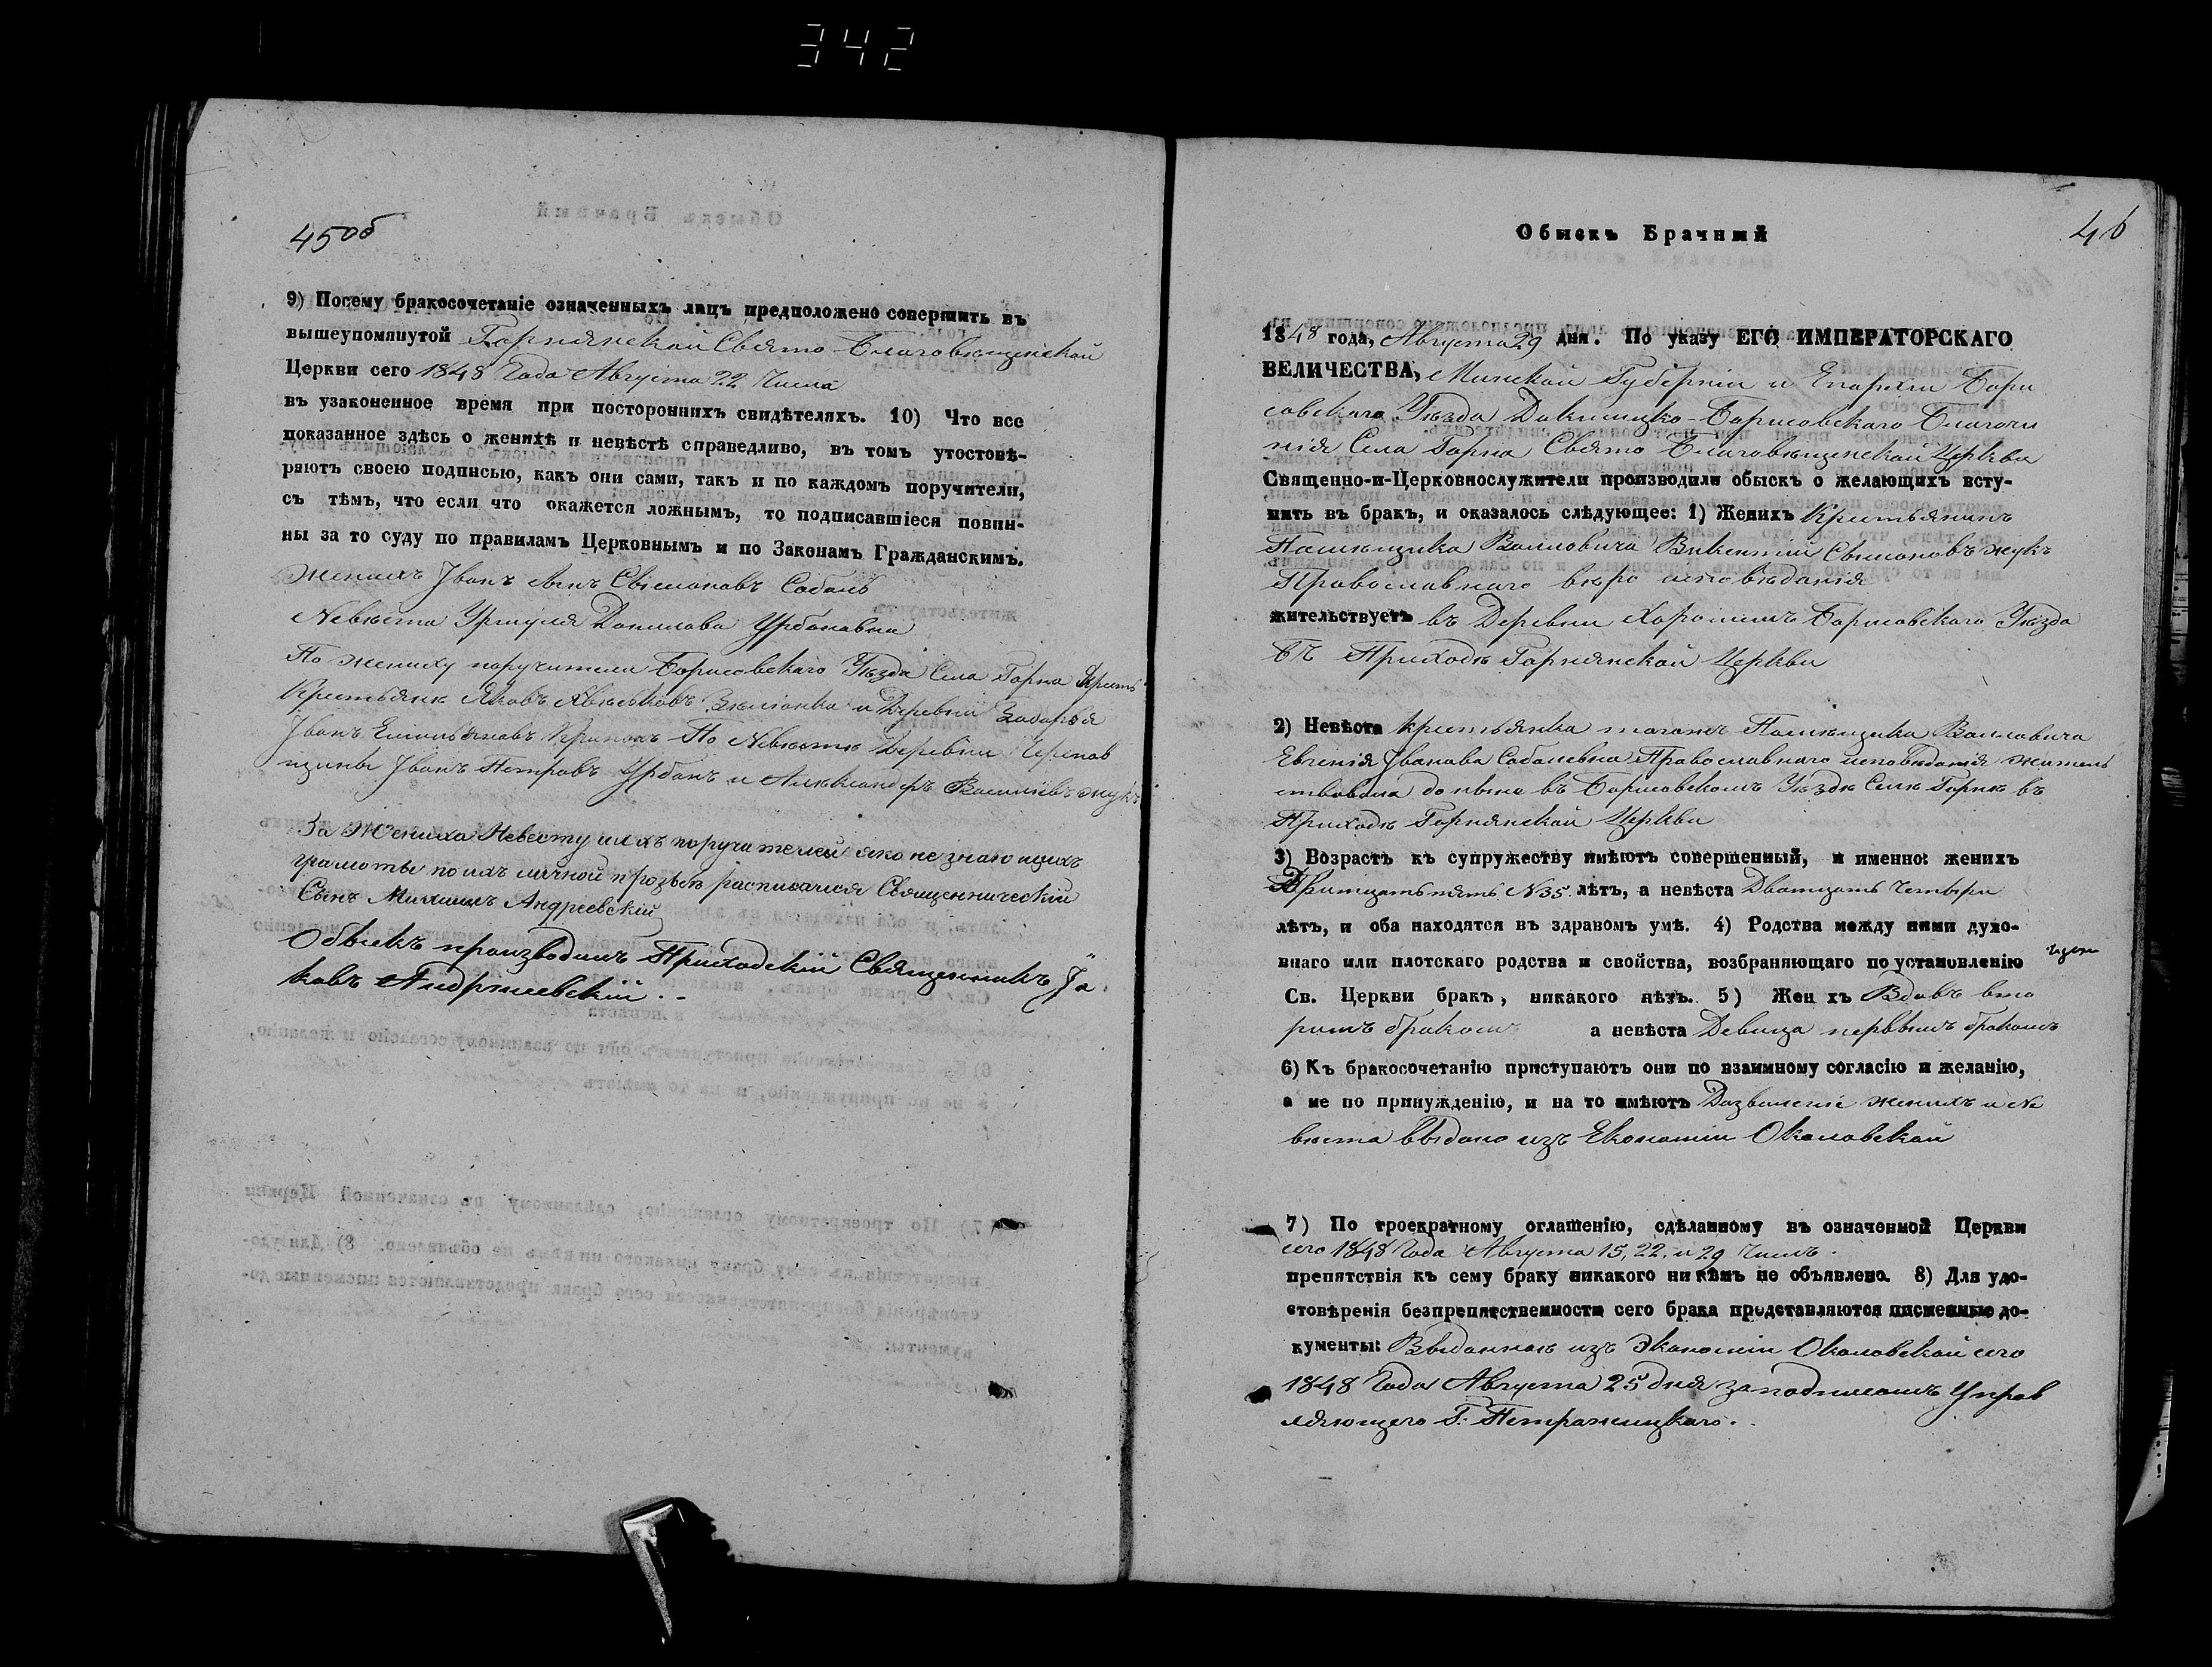 342
45об
9) Посему бракосочетаніе означенныхъ лицъ предположено совершить въ
вышеупомянутой Горнянской Свято-Благовѣщенской
Церкви сего 1848 Года Августа 22 Числа
въ узаконенное время при постороннихъ свидѣтеляхъ. 10) Что все
показанное здѣсь о женихѣ и невѣстѣ справедливо, въ томъ утостовѣ-
ряютъ своею подписью, какъ они сами, такъ и по каждомъ поручители,
съ тѣмъ, что если что окажется ложнымъ, то подписавшіеся повин-
ны за то суду по правиламъ Церковнымъ и по Законамъ Гражданскимъ.
Женихъ Іванъ Свімоновъ Соболь
Невѣста Уршуля Данилова Урбановна
По жениху поручители Борисовского Уѣзда Села Горна
Крестьяне Яковъ и Деревни Заборья
Іванъ Емільяновъ По Невѣстѣ Деревни Черепов
щины Іванъ Петровъ Урбанъ и Александеръ Василіевъ Жукъ
За Жениха Невесту ихъ поручителей яко незнающихъ
грамоты по ихъ личной прозьбѣ расписался Священническій
Сынъ Михаилъ Андреевскій
Обыскъ производилъ Приходскій Священникъ Іа
ковъ Андреевскій
Обыскъ Брачный
46
1848 года, Августа 29 дня. По указу ЕГО ИМПЕРАТОРСКАГО
ВЕЛИЧЕСТВА, Минской Губерніи и Епархіи Бори
совскаго Уѣзда Докшицко-Борисовскаго Благочи
нія Села Горна Свято Благовѣщенской Церкви
Священно-и-Церковнослужители производили обыскъ о желающихъ всту-
пить въ бракъ, и оказалось слѣдующее: 1) Женихъ Крестьянинъ
Помѣщика Воловича Викентій Свімоновъ Жукъ
Православнаго исповѣданія
жительствуетъ въ Деревни Борисовского Уѣзда
въ Приходѣ Горнянской Церкви
2) Невѣста крестьянка тогожъ Помѣщика Воловича
Евгенія Іванова Соболевна Православнаго исповѣданія житель
ствовала донынѣ въ Борисовскомъ Уѣздѣ Селѣ Горнѣ въ
Приходѣ Горнянской Церкви
3) Возрастъ къ супружеству имѣютъ совершенный, и именно: женихъ
Тритцать пять N35. лѣтъ, а невѣста Дватцать Четыри
лѣтъ, и оба находятся въ здравомъ умѣ. 4) Родства между ними духо-
внаго или плотскаго родства и свойства, возбраняющаго по установленію
Св. Церкви бракъ, никакого нѣтъ. 5) Жен хъ Вдовъ вто
римъ бракомъ а невѣста Девица первымъ бракомъ
6) Къ бракосочетанію приступаютъ они по взаимному согласію и желанію,
а не по принужденію, и на то имѣютъ Дозволеніе женихъ и Не
вѣста выдано изъ Економіи Околовской
7) По троекратному оглашенію, сдѣланному въ означенной Церкви
сего 1848 Года Августа 15, 22, и 29 Числъ.
препятствія къ сему браку никакого никѣмъ не объявлено. 8) Для удо-
стовѣренія безпрепятственности сего брака представляются писменные до-
кументы: Выданное изъ Экономіи Околовской сего
1848 Года Августа 25 дня за подписомъ Управ
ляющего Г. Петражицкаго.